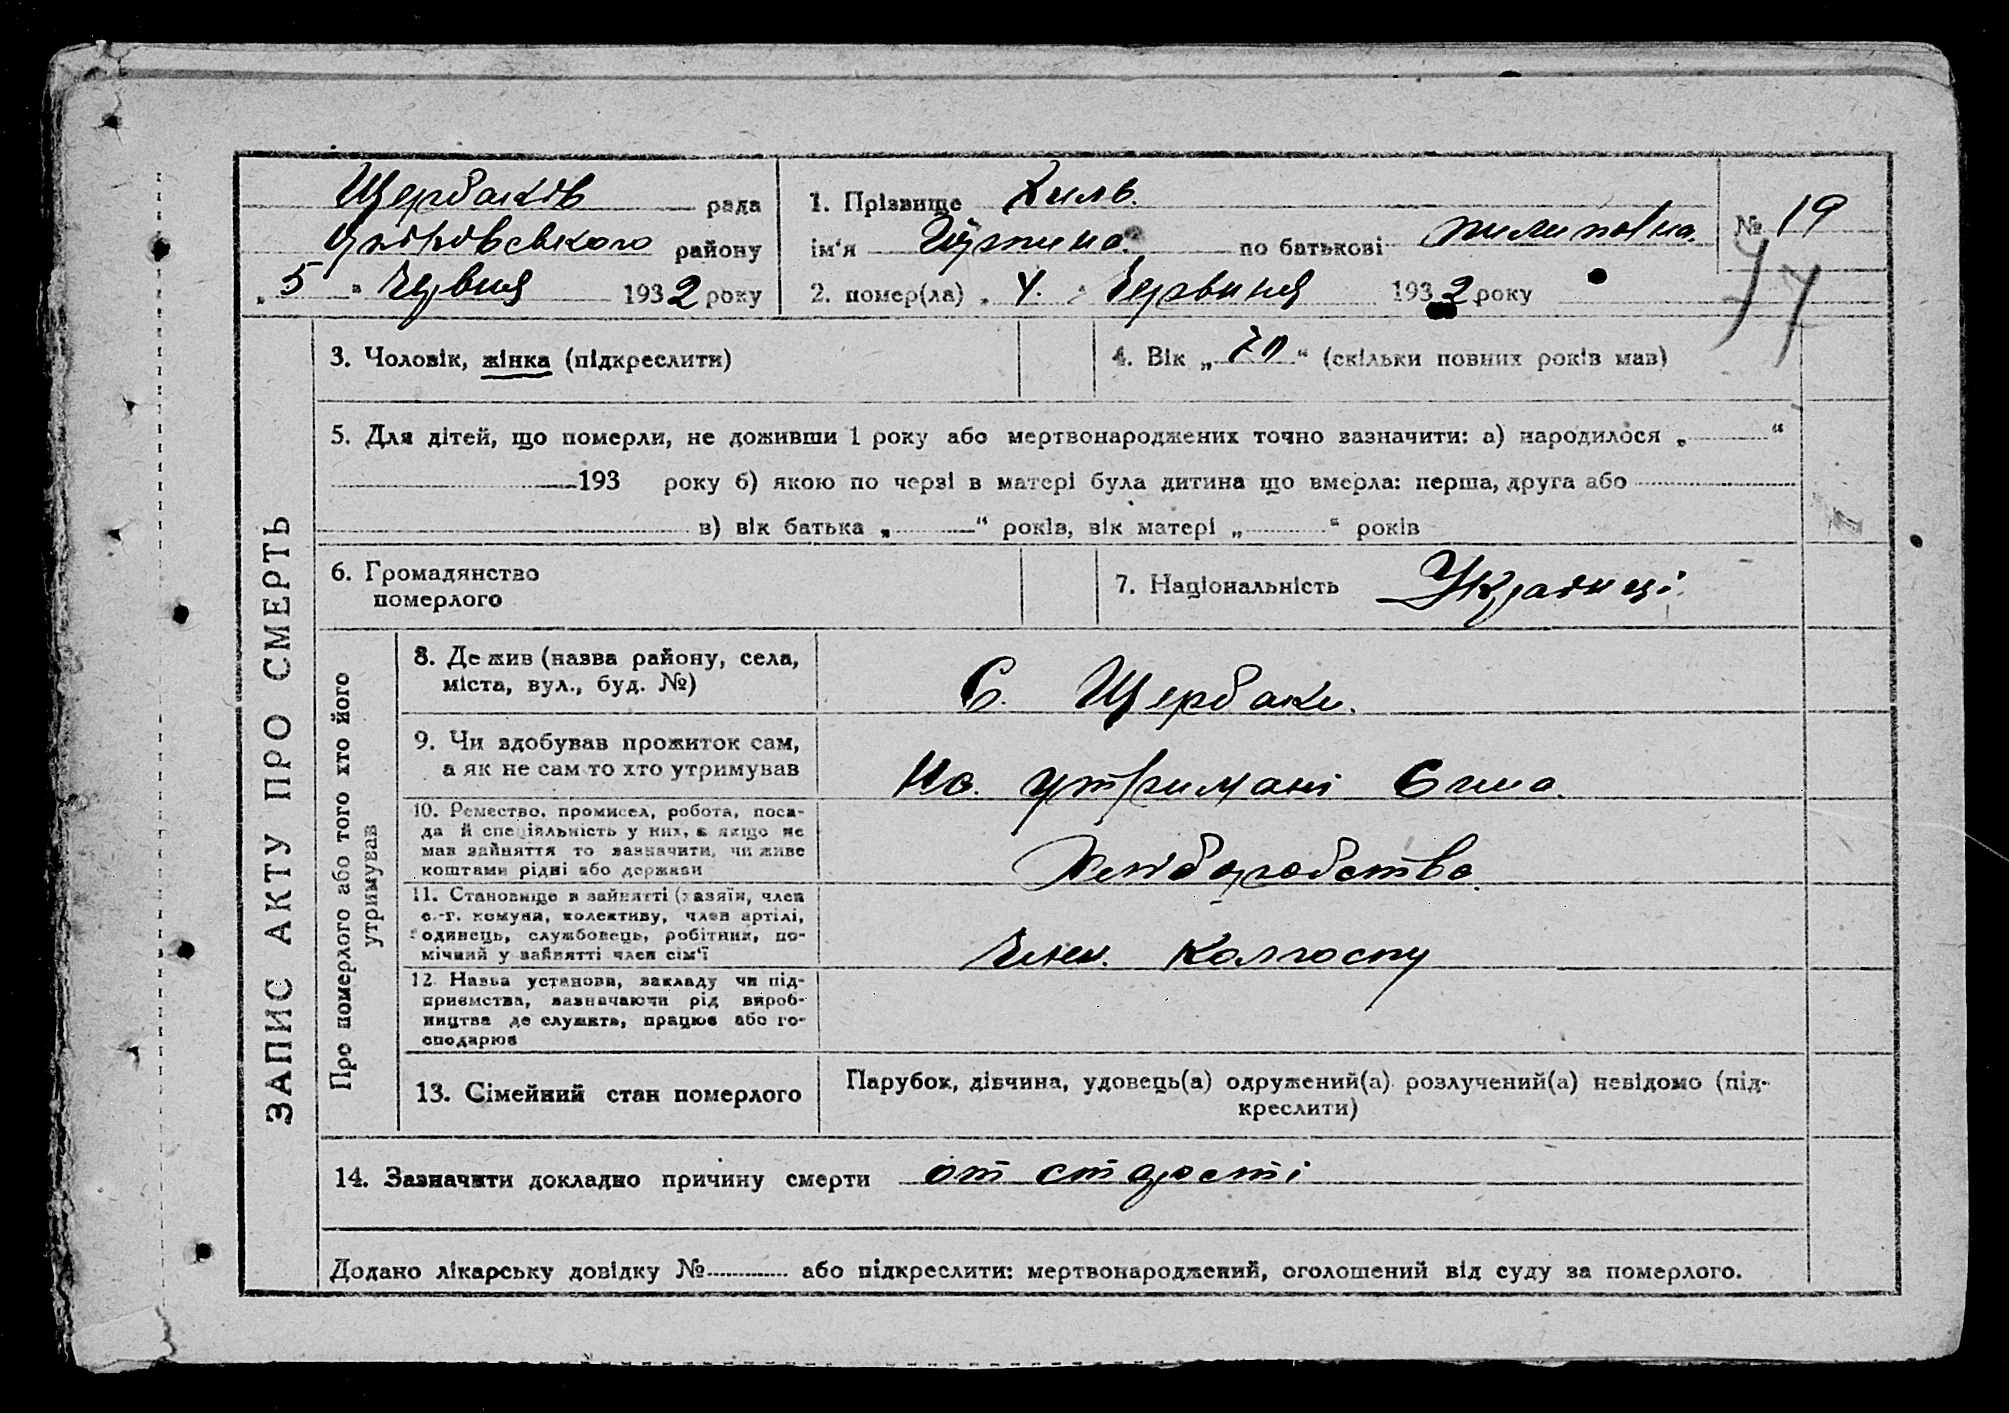 Щербаків рада
району
„ 5 " Червня 1932 року
1. Прізвище Хиль.
ім'я Устина по батькові Пилипівна.
2. помер(ла) „ 4. " Червиня 1932 року
№ 19
ЗАПИС АКТУ ПРО СМЕРТЬ
3. Чоловік, жінка (підкреслити)
4. Вік „ 70 " (скільки повних років мав)
5. Для дітей, що померли, не доживши 1 року або мертвонароджених точно зазначити: а) народилося „ "
193 року б) якою по черзі в матері була дитина що вмерла: перша, друга або
в) вік батька „ " років, вік матері „ " років
6. Громадянство
померлого
7. Національність Украінці
Про померлого або того хто його
утримував
8. Де жив (назва району, села,
міста, вул., буд. №)
С. Щербаки.
9. Чи здобував прожиток сам,
а як не сам то хто утримував
На утримані Сина.
10. Ремество, промисел, робота, поса-
да й спеціяльність у них, а якщо не
мав зайняття то зазначити, чи живе
коштами рідні або держави
Хліборобство.
11. Становище в зайнятті (хазяїн, член
с.-г. комуни, колективу, член артілі,
одинець, службовець, робітник, по-
мічний у зайнятті член сім'ї
Член. Колгоспу
12. Назва установи, закладу чи під-
приємства, зазначаючи рід вироб-
ництва де служить, працює або го-
сподарює
13. Сімейний стан померлого
Парубок, дівчина, удовець(а) одружений(а) розлучений(а) невідомо (під-
креслити)
14. Зазначити докладно причину смерти от старості
Додано лікарську довідку № або підкреслити: мертвонароджений, оголошений від суду за померлого.